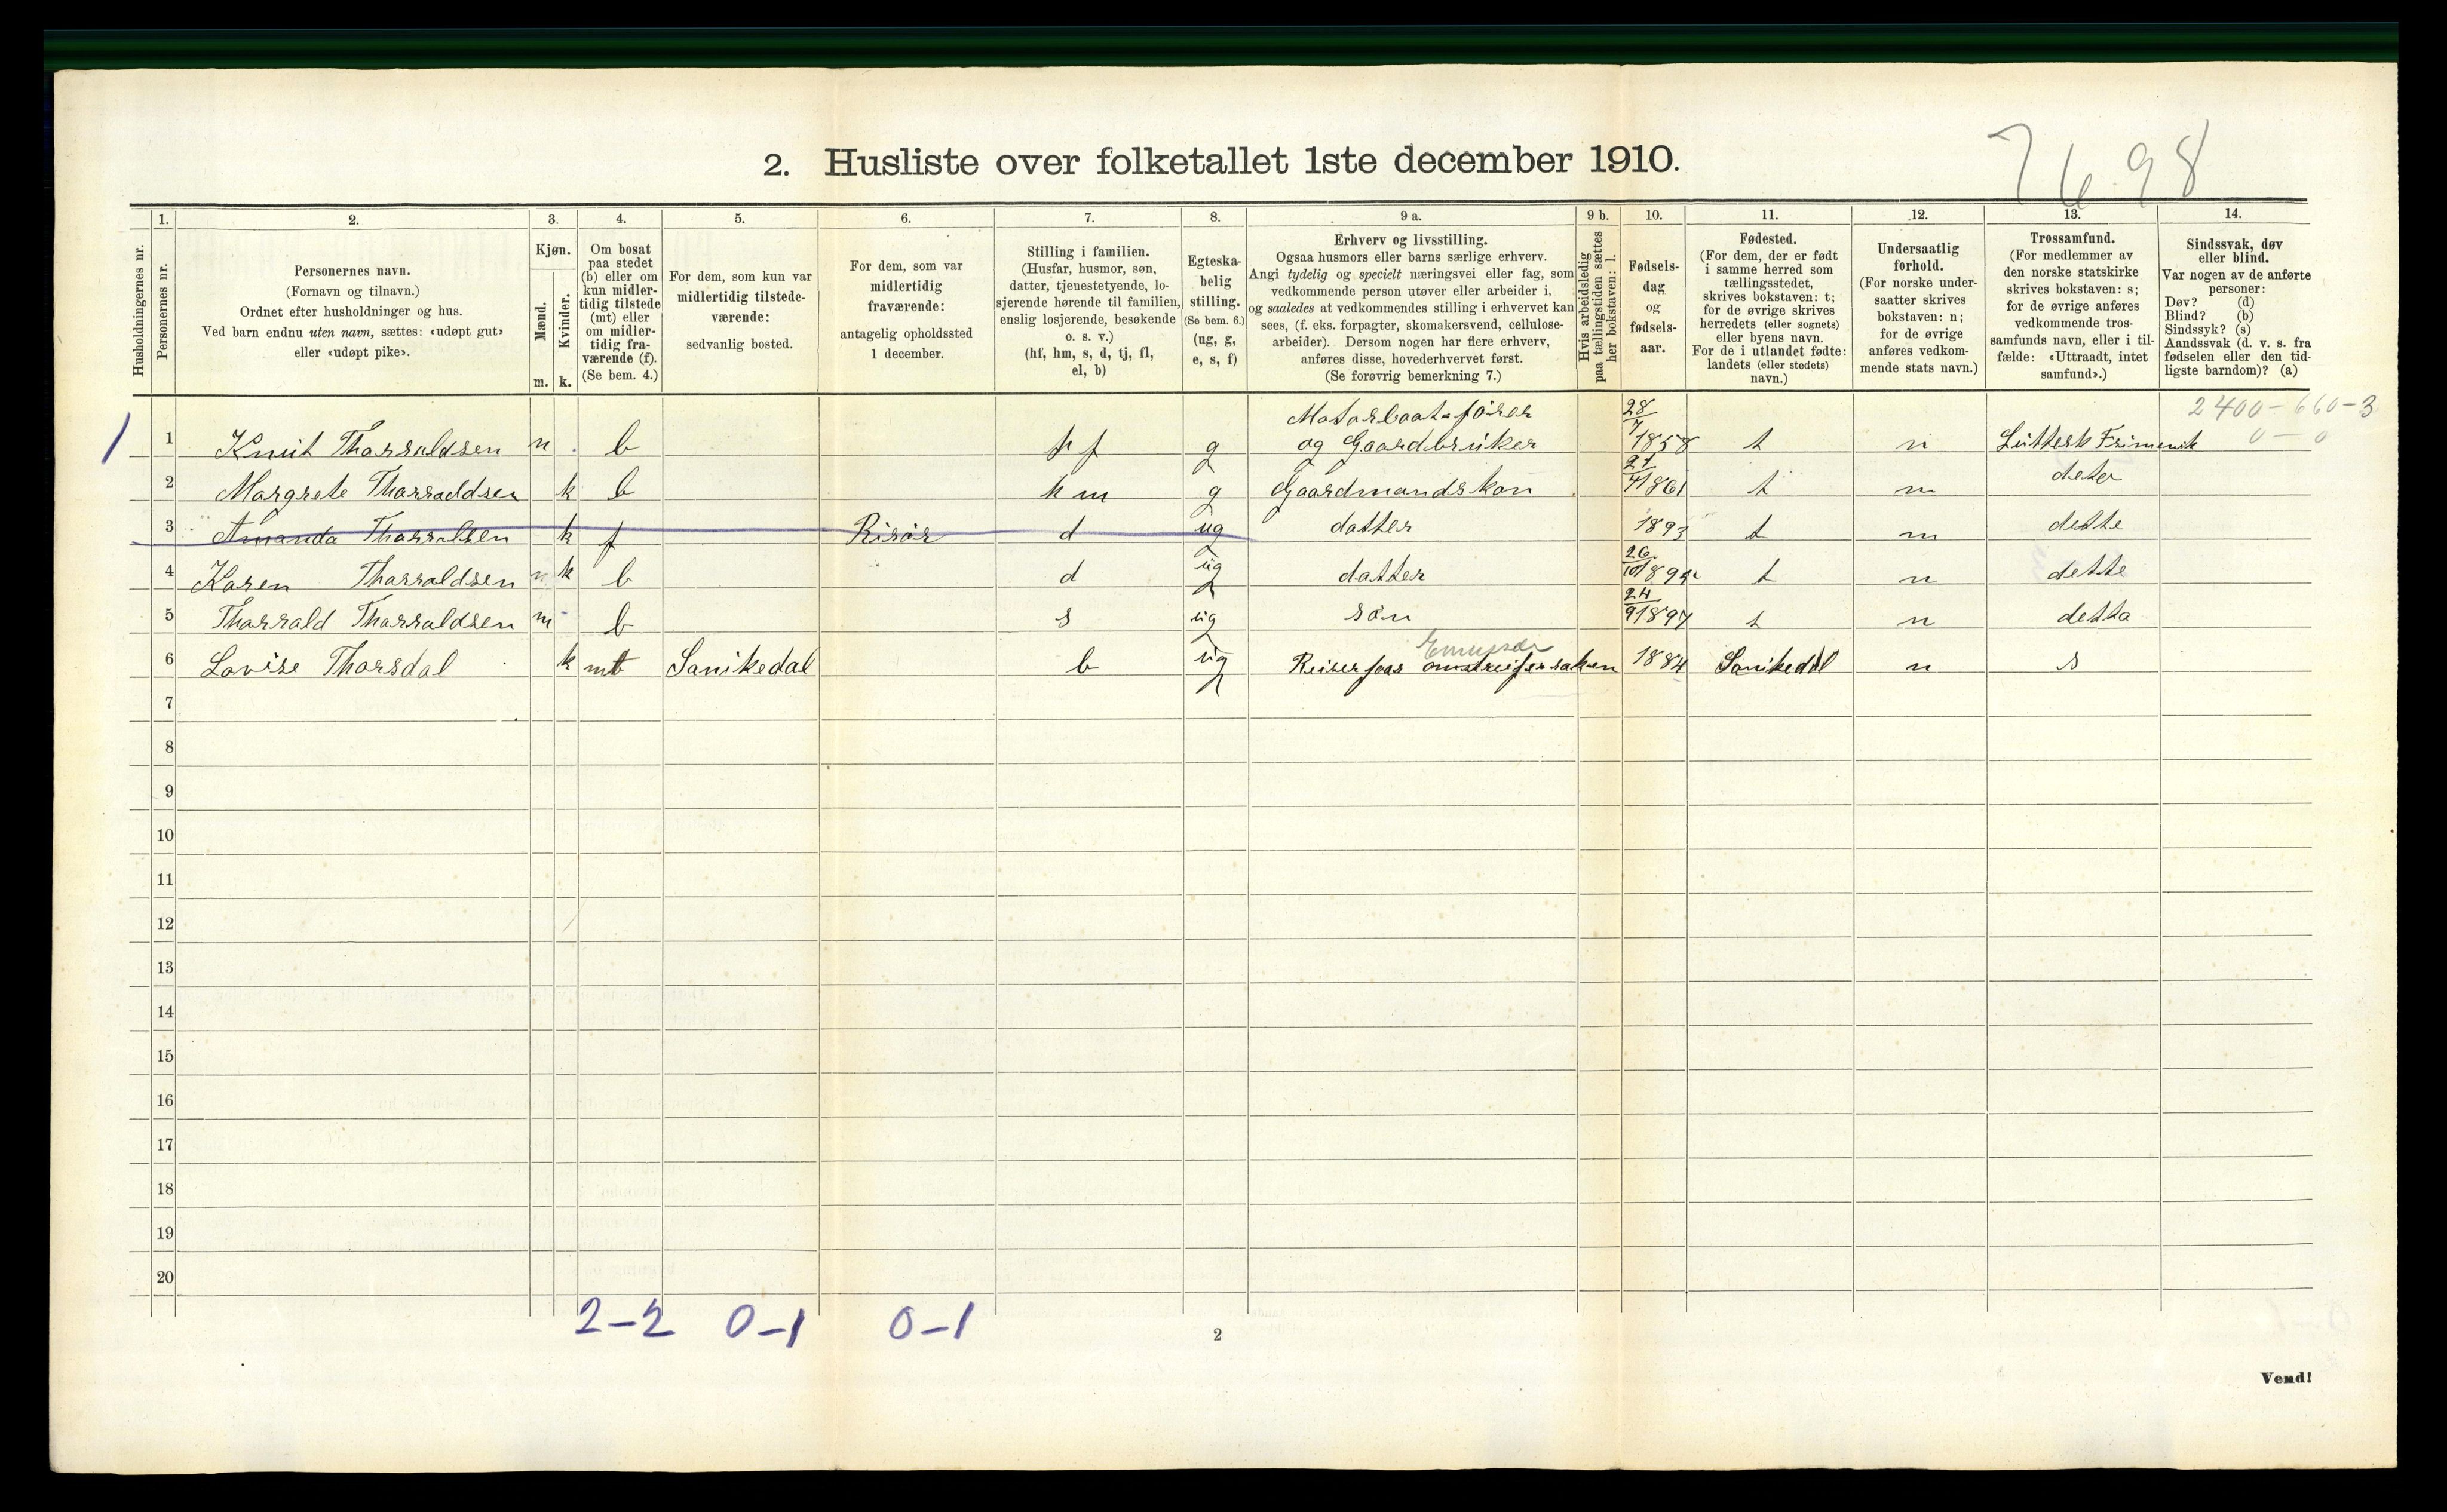 7698
2. Husliste over folketallet 1ste december 1910.
Husholdningernes nr.
1.
Personernes nr.
2.
Personernes navn.
(Fornavn og tilnavn.)
Ordnet efter husholdninger og hus.
Ved barn endnu uten navn, sættes: «udøpt gut»
eller «udøpt pike».
3.
Kjøn.
Mænd.
m.
Kvinder.
k.
4.
Om bosat
paa stedet
(b) eller om
kun midler-
tidig tilstede
(mt) eller
om midler-
tidig fra-
værende (f).
(Se bem. 4.)
5.
For dem, som kun var
midlertidig tilstede-
værende:
sedvanlig bosted.
6.
For dem, som var
midlertidig
fraværende:
antagelig opholdssted
1 december.
7.
Stilling i familien.
(Husfar, husmor, søn,
datter, tjenestetyende, lo-
sjerende hørende til familien,
enslig losjerende, besøkende
o. s. v.)
(hf, hm, s, d, tj, fl,
el, b)
8.
Egteska-
belig
stilling.
(Se bem. 6.)
(ug, g,
e, s, f)
9 a.
Erhverv og livsstilling.
Ogsaa husmors eller barns særlige erhverv.
Angi tydelig og specielt næringsvei eller fag, som
vedkommende person utøver eller arbeider i,
og saaledes at vedkommendes stilling i erhvervet kan
sees, (f. eks. forpagter, skomakersvend, cellulose-
arbeider). Dersom nogen har flere erhverv,
anføres disse, hovederhvervet først.
(Se forøvrig bemerkning 7.)
9 b.
Hvis arbeidsledig
paa tællingstiden sættes
her bokstaven: l.
10.
Fødsels-
dag
og
fødsels-
aar.
11.
Fødested.
(For dem, der er født
i samme herred som
tællingsstedet,
skrives bokstaven: t;
for de øvrige skrives
herredets (eller sognets)
eller byens navn.
For de i utlandet fødte:
landets (eller stedets)
navn.)
12.
Undersaatlig
forhold.
(For norske under-
saatter skrives
bokstaven: n;
for de øvrige
anføres vedkom-
mende stats navn.)
13.
Trossamfund.
(For medlemmer av
den norske statskirke
skrives bokstaven: s;
for de øvrige anføres
vedkommende tros-
samfunds navn, eller i til-
fælde: «Uttraadt, intet
samfund».)
14.
Sindssvak, døv
eller blind.
Var nogen av de anførte
personer:
Døv? (d)
Blind? (b)
Sindssyk? (s)
Aandssvak (d. v. s. fra
fødselen eller den tid-
ligste barndom)? (a)
2400-660-3
0-0
1 1 Knut Tharraldsen m b hf g Motorbaatsfører og Gaardbruker 28/7 1858 t n Luthersk Frimenik
2 Margrete Tharraldsen k b hm g Gaardmandskon 21/4 1861 t n dete
3 Amanda Tharralsen k f Risør d ug datter 1893 t n dette
4 Karen Tharraldsen k b d ug datter 26/10 1895 t n dette
5 Tharrald Tharraldsen m b s ug søn 24/9 1897 t n detta
6 Lovise Thorsdal k mt Sanikedal b ug Reiser foar omstreifersaken 1884 Sanikedal n s
7
8
9
10
11
12
13
14
15
16
17
18
19
20
2-2 0-1 0-1
2
Vend!